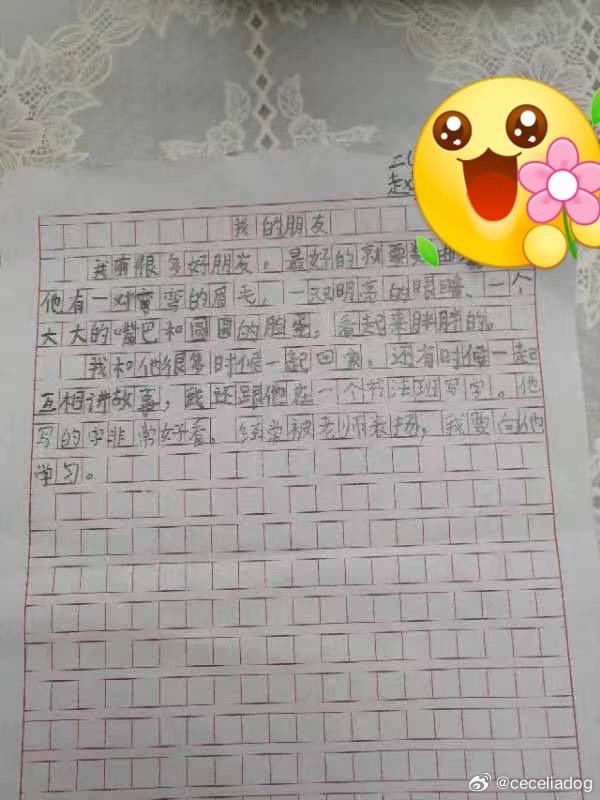 二(
赵
我的朋友
我有很多好朋友，最好的就要
他有一对弯弯的眉毛，一双明亮的眼睛、一个
大大的嘴巴和圆圆的脸蛋，看起来胖胖的。
我和他很多时候一起回家，还有时候一起
互相讲故事，我还跟他在一个书法班写字。他
写的字非常好看，经常被老师表扬，我要向他
学习。
@ceceliadog